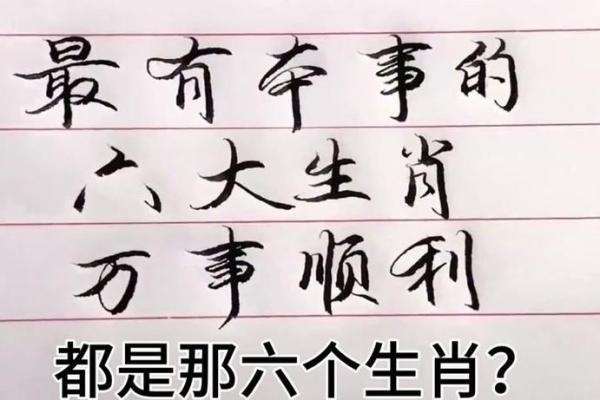 最有本事的
六大生肖
万事顺利
都是那六个生肖？